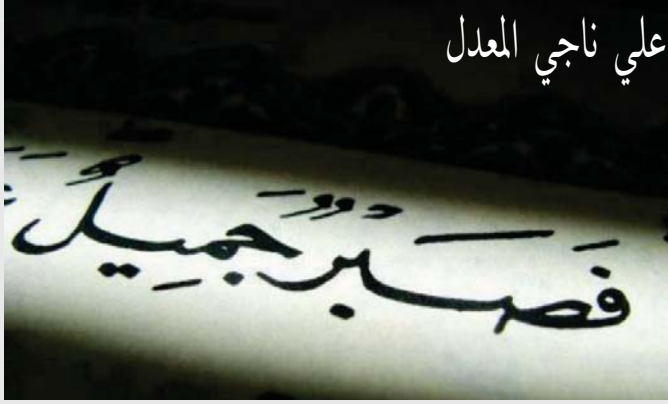 علي ناجي المعدل
فَصَبْرٌ جَمِيلٌ